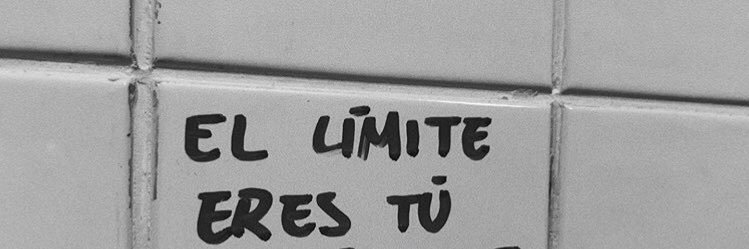 EL LÍMITE
ERES TÚ